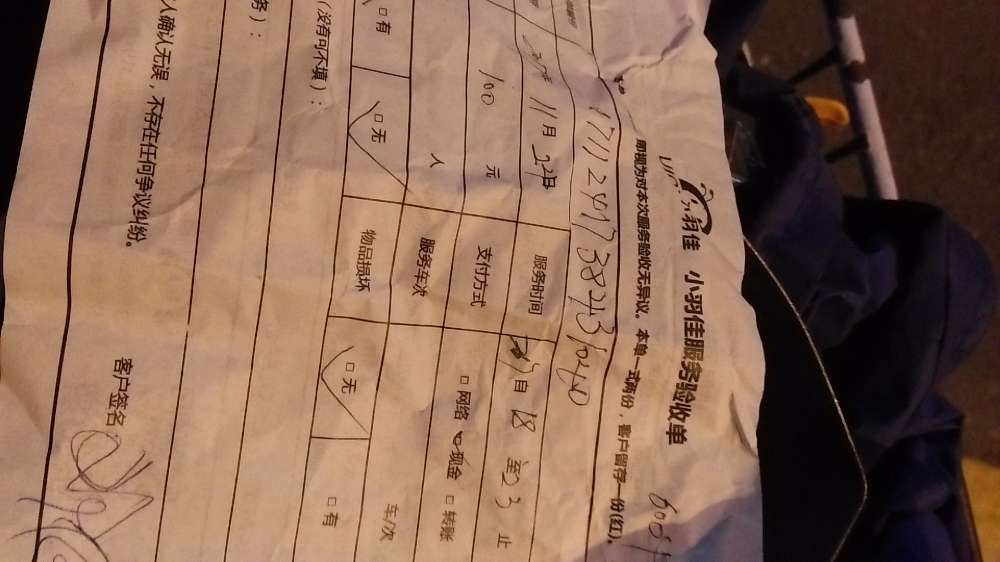 羽佳 小羽佳服务验收单
即视为对本次服务验收无异议。本单一式两份,客户留存一份(红)。
11月 服务时间 自 18 至 23 止
100 元 支付方式 □网络 现金 □转账
人 服务车次 车/次
□有 □无 物品损坏 □无 □有
(没有可不填):
务):
人确认无误,不存在任何争议纠纷。
客户签名